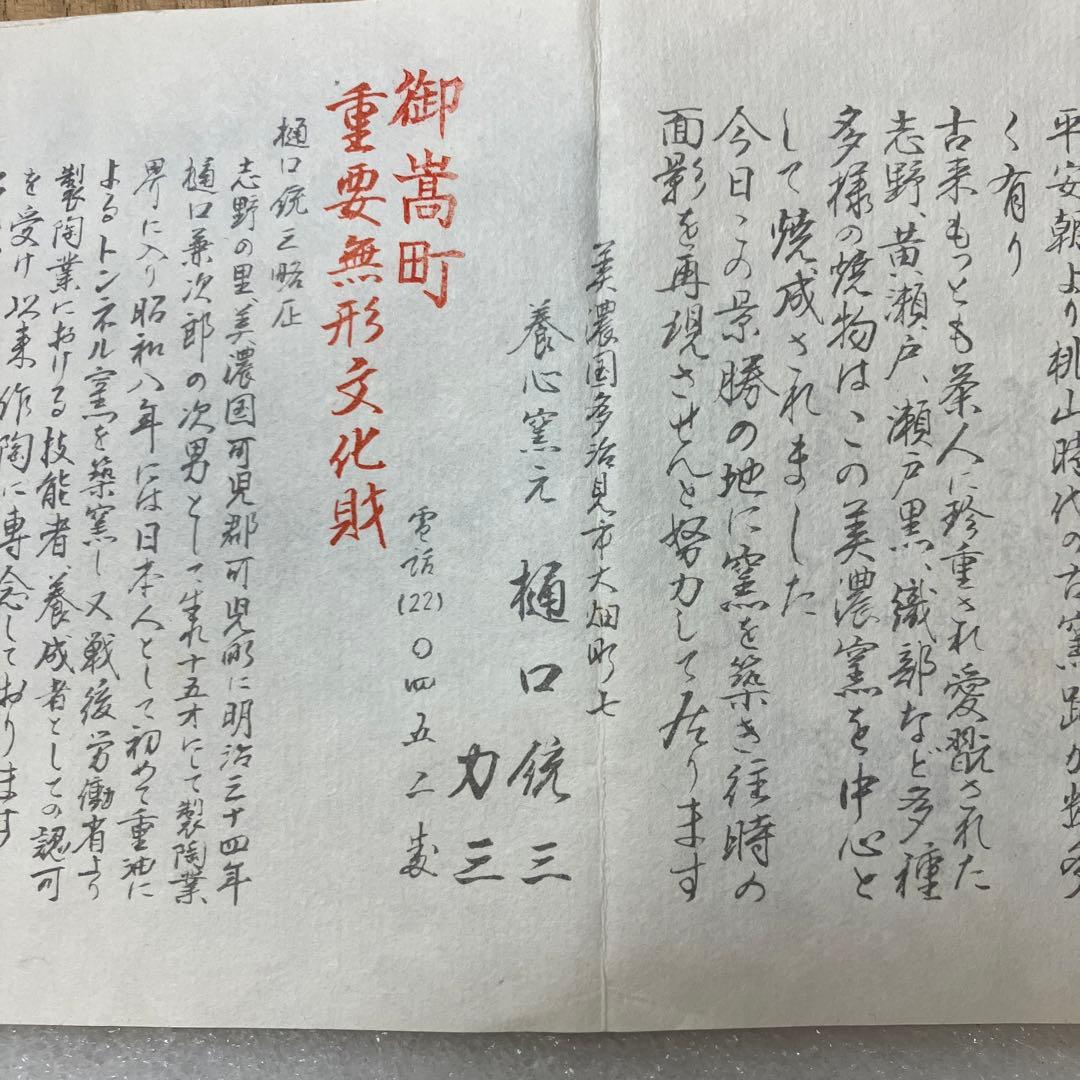 平安朝より桃山時代の古窯跡が数多
く有り
古来もっとも茶人に珍重され愛翫された
志野、黄瀬戸、瀬戸黒、織部など多種
多様の焼物はこの美濃窯を中心と
して焼成されました
今日この景勝の地に窯を築き往時の
面影を再現させんと努力して居ります
美濃国多治見市大畑町七
養心窯元 樋口鋭三
力三
電話(22)〇四五二番
御嵩町
重要無形文化財
樋口鋭三略歴
志野の里、美濃国可児郡可児町に明治三十四年
樋口兼次郎の次男として生れ十五才にて製陶業
界に入り昭和八年には日本人として初めて重油に
よるトンネル窯を築窯し又戦後労働省より
製陶業における技能者、養成者としての認可
を受け以来作陶に専念しております